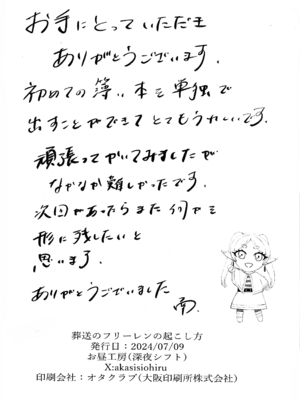 お手にとっていただき
ありがとうございます.
初めての薄い本を単独で
出すことができてとてもうれしいです.
頑張ってかいてみましたが
なかなか難しかったです.
次回があったらまた何かを
形に残したいと
思います.
ありがとうございました
葬送のフリーレンの起こし方
発行日：2024/07/09
お昼工房(深夜シフト)
X:akasisiohiru
印刷会社：オタクラブ(大阪印刷所株式会社)